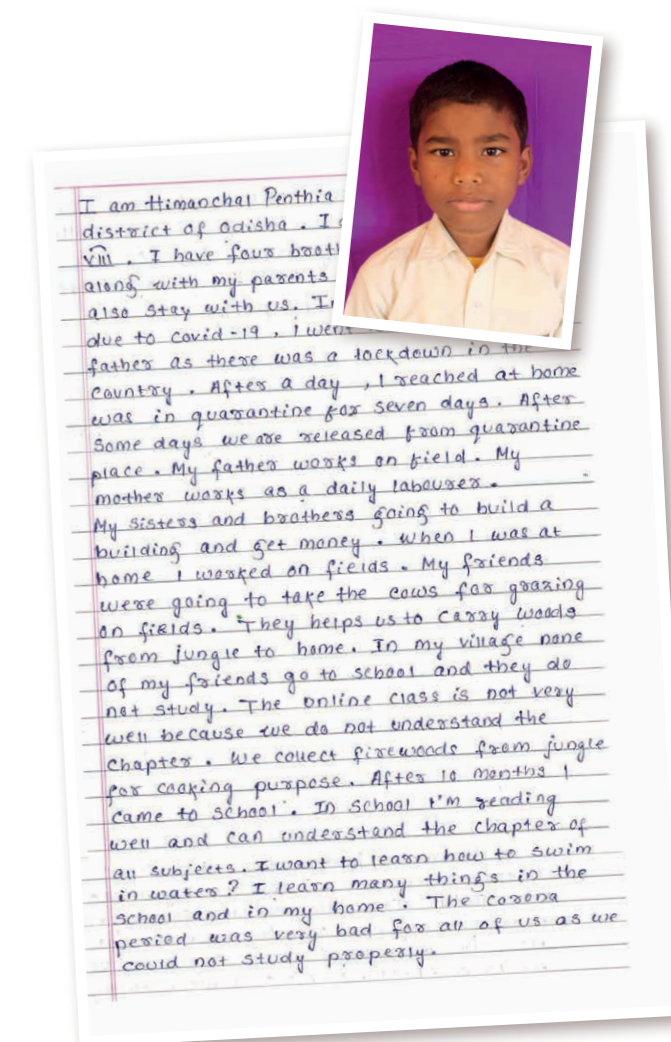 I am Himanchal Penthia
district of Odisha. I
VIII. I have four
along with my parents
also stay with us.
due to covid-19, I went
father as there was a lockdown in the
country. After a day, I reached at home
was in quarantine for seven days. After
some days we are released from quarantine
place. My father works on field. My
mother works as a daily labourer.
My sisters and brothers going to build a
building and get money. When I was at
home I worked on fields. My friends
were going to take the cows for grazing
on fields. They helps us to carry woods
from jungle to home. In my village none
of my friends go to school and they do
not study. The online class is not very
well because we do not understand the
chapter. We collect firewoods from jungle
for cooking purpose. After 10 months I
came to school. In school I'm reading
well and can understand the chapter of
all subjects. I want to learn how to swim
in water? I learn many things in the
school and in my home. The corona
period was very bad for all of us as we
could not study properly.